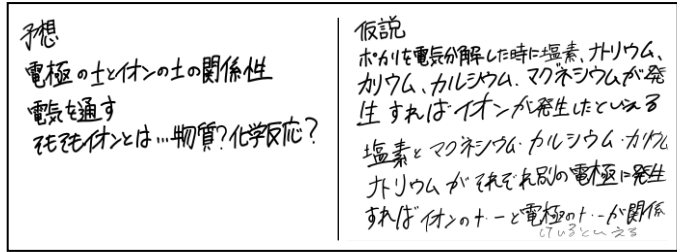 予想
電極の±とイオンの±の関係性
電気を通す
そもそもイオンとは…物質?化学反応?
仮説
ポカリを電気分解した時に塩素、ナトリウム、
カリウム、カルシウム、マグネシウムが発
生すればイオンが発生したといえる
塩素とマグネシウム・カルシウム・カリウム
ナトリウムがそれぞれ別の電極に発生
すればイオンの+・-と電極の+・-が関係
しているといえる